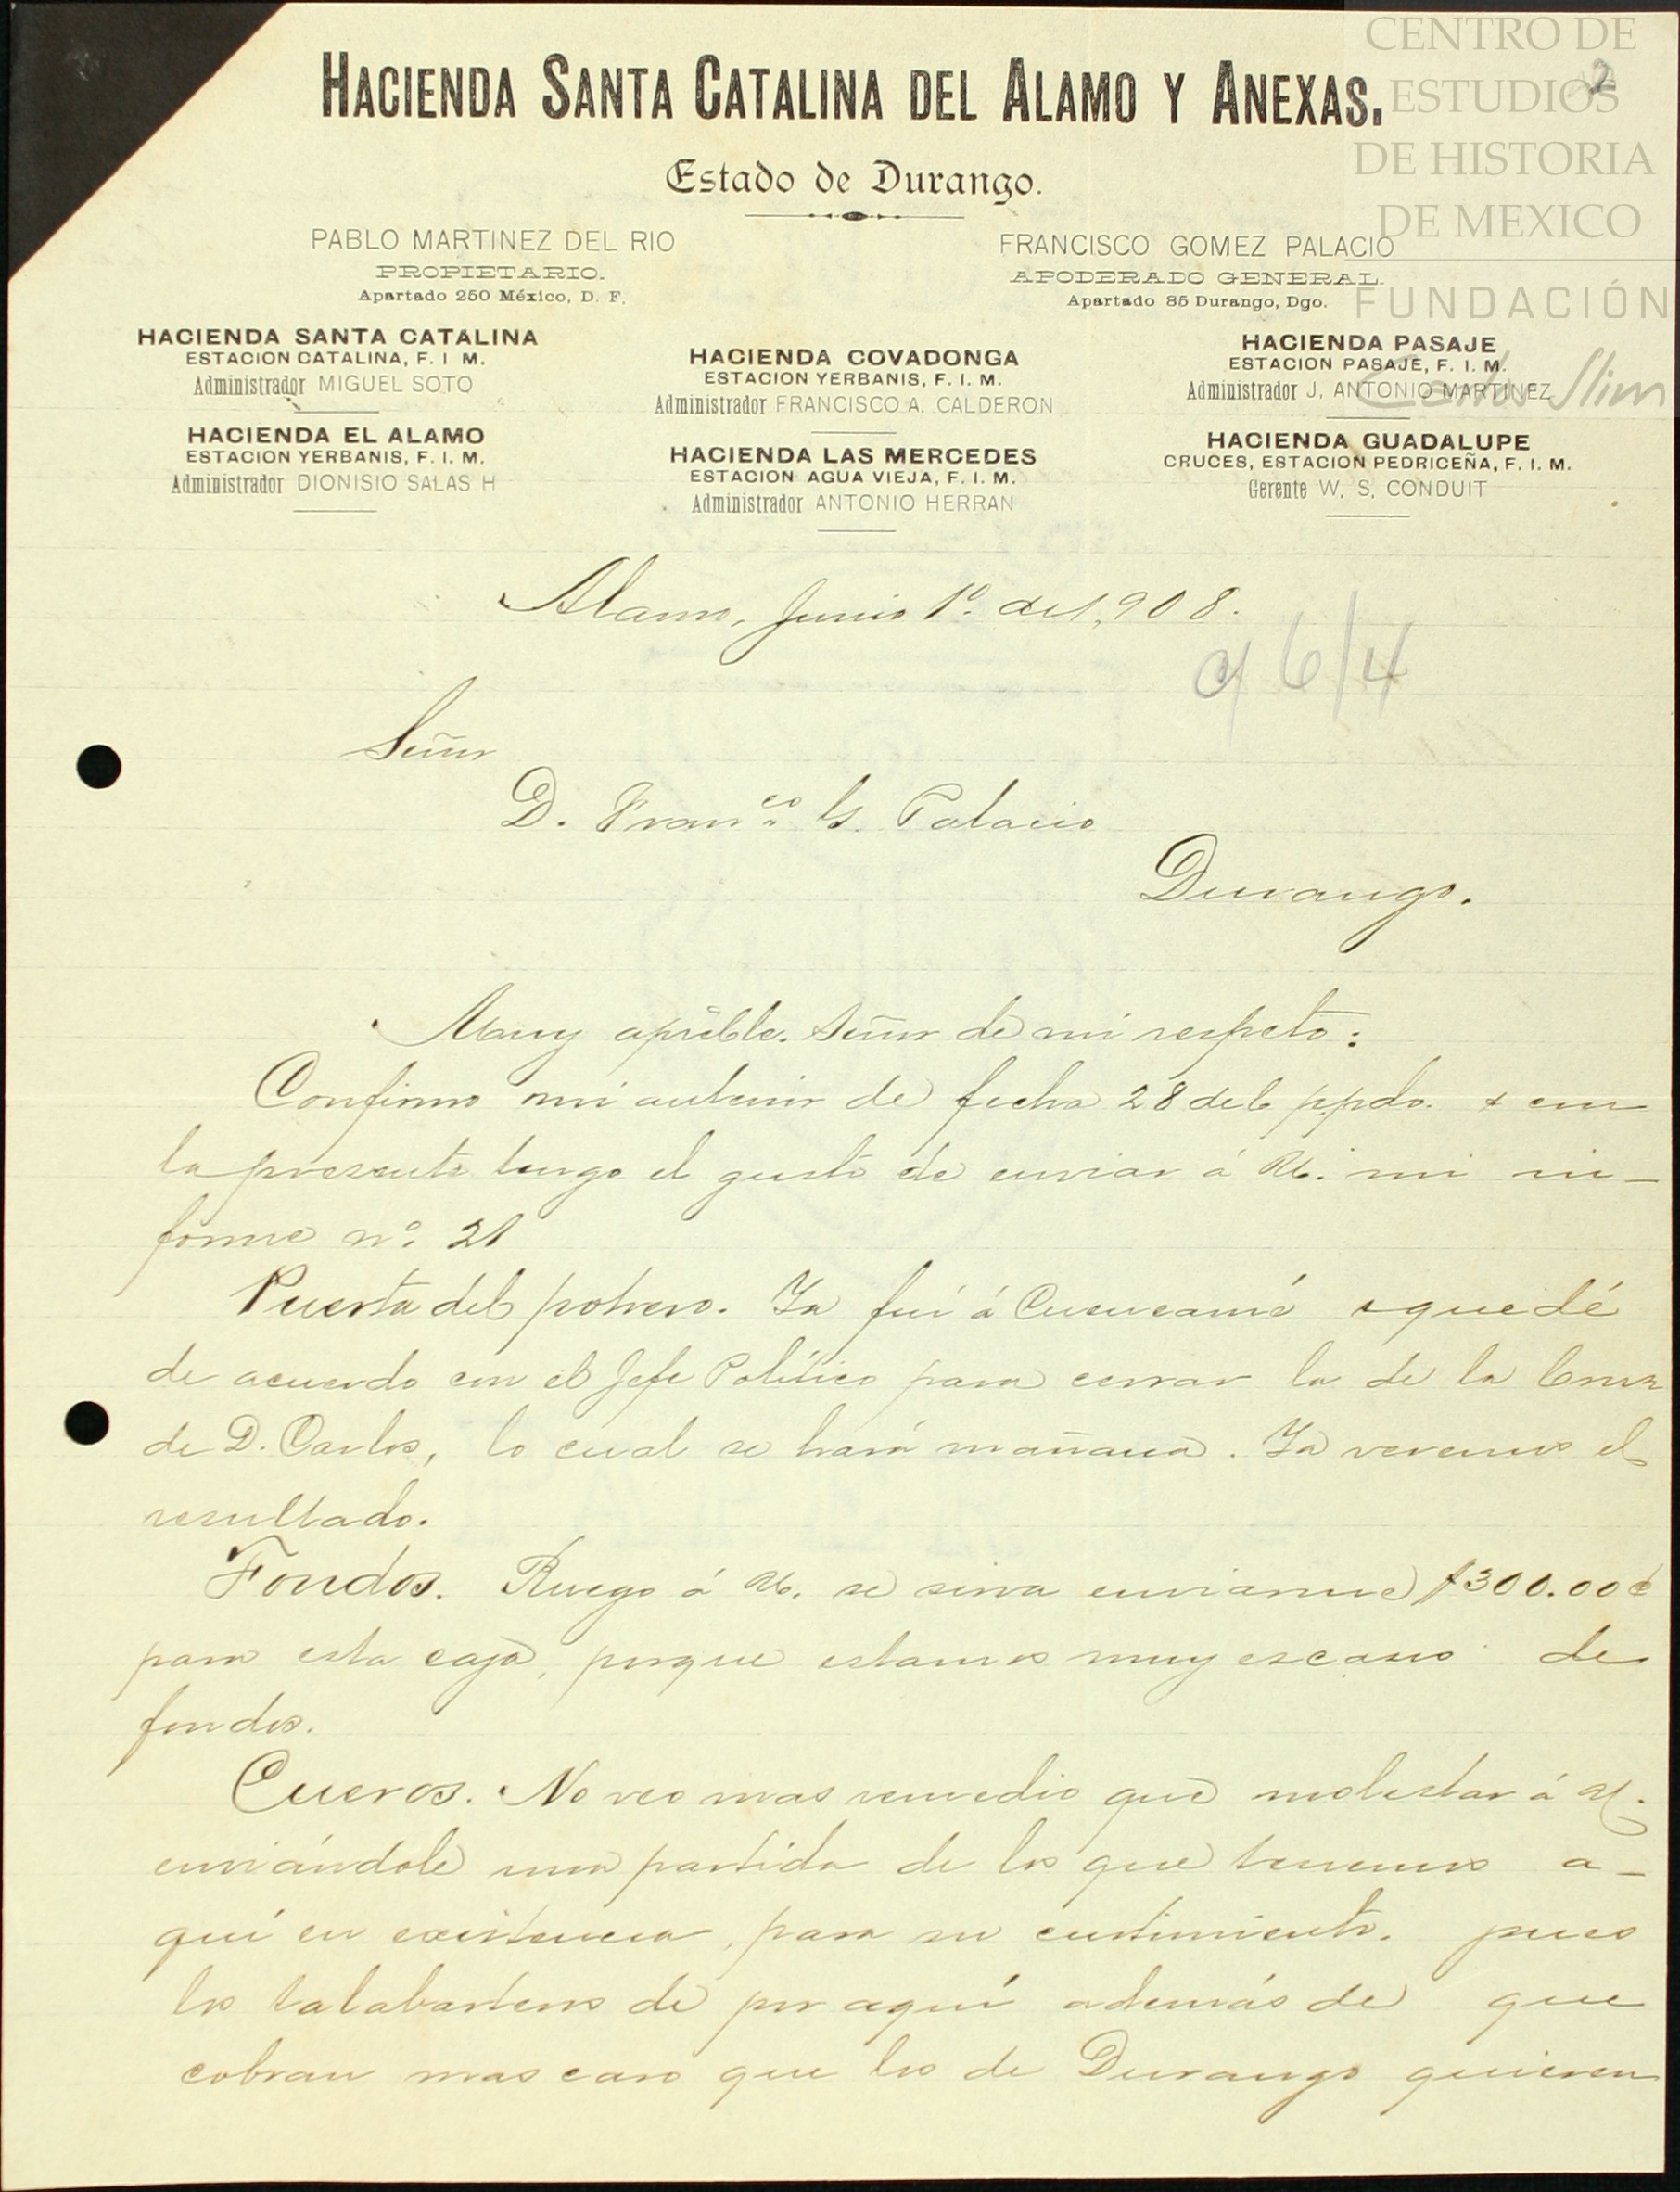 CENTRO DE
ESTUDIOS
DE HISTORIA
DE MEXICO
FUNDACIÓN
Carlos Slim
2
HACIENDA SANTA CATALINA DEL ALAMO Y ANEXAS.
Estado de Durango.
PABLO MARTINEZ DEL RIO
PROPIETARIO.
Apartado 250 México, D. F.
FRANCISCO GOMEZ PALACIO
APODERADO GENERAL.
Apartado 85 Durango, Dgo.
HACIENDA SANTA CATALINA
ESTACION CATALINA, F. I M.
Administrador MIGUEL SOTO
HACIENDA EL ALAMO
ESTACION YERBANIS, F. I. M.
Administrador DIONISIO SALAS H
HACIENDA COVADONGA
ESTACION YERBANIS, F. I. M.
Administrador FRANCISCO A. CALDERON
HACIENDA LAS MERCEDES
ESTACION AGUA VIEJA, F. I. M.
Administrador ANTONIO HERRAN
HACIENDA PASAJE
ESTACION PASAJE, F. I. M.
Administrador J. ANTONIO MARTINEZ
HACIENDA GUADALUPE
CRUCES, ESTACION PEDRICEÑA, F. I. M.
Gerente W. S. CONDUIT
Alamo, Junio 1º. de 1,908.
6/4
Señor
D. Franco. G. Palacio
Durango.
Muy apreble. Señor de mi respeto:
Confirmo mi anterior de fecha 28 del ppdo. y con
la presente tengo el gusto de enviar á Ud. mi in-
forme nº. 21
Puerta del potrero. Ya fuí á Cuencamé y quedé
de acuerdo con el Jefe Político para cerrar la de la Cruz
de D. Carlos, lo cual se hará mañana. Ya veremos el
resultado.
Fondos. Ruego á Ud. se sirva enviarme $300.00¢
para esta caja, porque estamos muy escaso de
fondos.
Cueros. No veo mas remedio que molestar á U.
enviándole una partida de los que tenemos a-
quí en existencia, para su curtimiento. pues
los talabarteros de por aquí además de que
cobran mas caro que los de Durango quieren